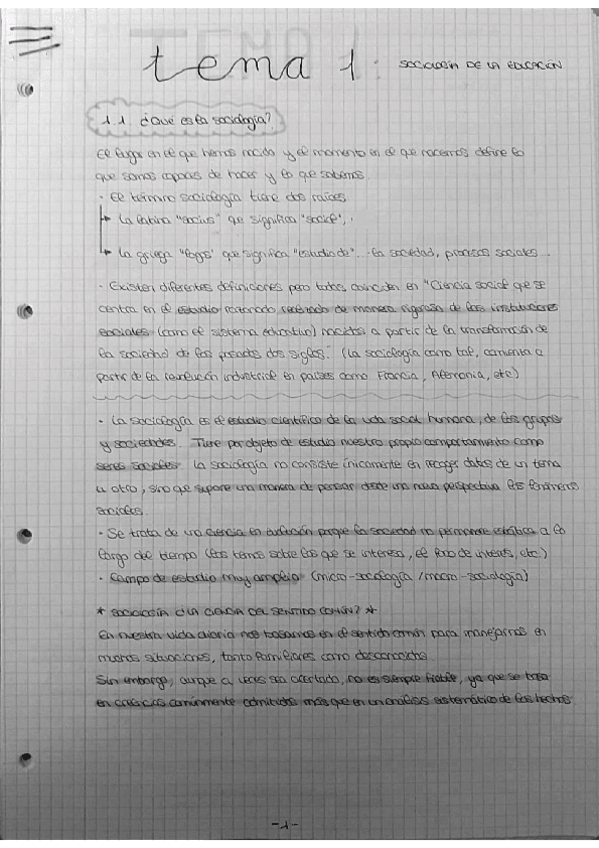 tema 1: SOCIOLOGÍA DE LA EDUCACIÓN
1.1. ¿Qué es la sociología?
El lugar en el que hemos nacido y el momento en el que nacemos define lo
que somos capaces de hacer y lo que sabemos.
· El término sociología tiene dos raíces
La latina "socius" que significa "social",.
La griega "logo" que significa "estudio de"... la sociedad, procesos sociales...
· Existen diferentes definiciones pero todas coinciden en "Ciencia social que se
centra en el estudio razonado, realizado de manera rigurosa de las instituciones
sociales (como el sistema educativo) nacidas a partir de la transformación de
la sociedad de los pasados dos siglos." (La sociología como tal, comienza a
partir de la revolución industrial en países como Francia, Alemania, etc)
· La sociología es el estudio científico de la vida social humana, de los grupos
y sociedades. Tiene por objeto de estudio nuestro propio comportamiento como
seres sociales. La sociología no consiste únicamente en recoger datos de un tema
u otro, sino que supone una manera de pensar desde una nueva perspectiva los fenómenos
sociales.
· Se trata de una ciencia en evolución porque la sociedad no permanece estática a lo
largo del tiempo (los temas sobre los que se interesa, el foco de interés, etc.)
· Campo de estudio muy amplio (micro-sociología / macro-sociología)
* SOCIOLOGÍA ¿LA CIENCIA DEL SENTIDO COMÚN? *
En nuestra vida diaria nos basamos en el sentido común para manejarnos en
muchas situaciones, tanto familiares como desconocidas.
Sin embargo, aunque a veces sea acertado, no es siempre fiable, ya que se basa
en creencias comúnmente admitidas más que en un análisis sistemático de los hechos.
-1-